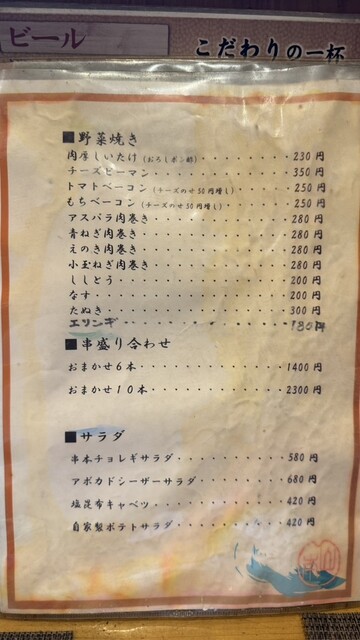 ビール
こだわりの一杯
■野菜焼き
肉厚しいたけ（おろしポン酢）・・・・・・・・・230円
チーズピーマン・・・・・・・・・・・・・・350円
トマトベーコン（チーズのせ50円増し）・・・・・・250円
もちベーコン（チーズのせ50円増し）・・・・・・・250円
アスパラ肉巻き・・・・・・・・・・・・・・280円
青ねぎ肉巻き・・・・・・・・・・・・・・・280円
えのき肉巻き・・・・・・・・・・・・・・・280円
小玉ねぎ肉巻き・・・・・・・・・・・・・・280円
ししとう・・・・・・・・・・・・・・・・・200円
なす・・・・・・・・・・・・・・・・・・・200円
たぬき・・・・・・・・・・・・・・・・・・300円
エリンギ・・・・・・・・・・・・・・・・・180円
■串盛り合わせ
おまかせ６本・・・・・・・・・・・・・・・1400円
おまかせ１０本・・・・・・・・・・・・・・2300円
■サラダ
串本チョレギサラダ・・・・・・・・・・・・580円
アボカドシーザーサラダ・・・・・・・・・・680円
塩昆布キャベツ・・・・・・・・・・・・・・420円
自家製ポテトサラダ・・・・・・・・・・・・420円